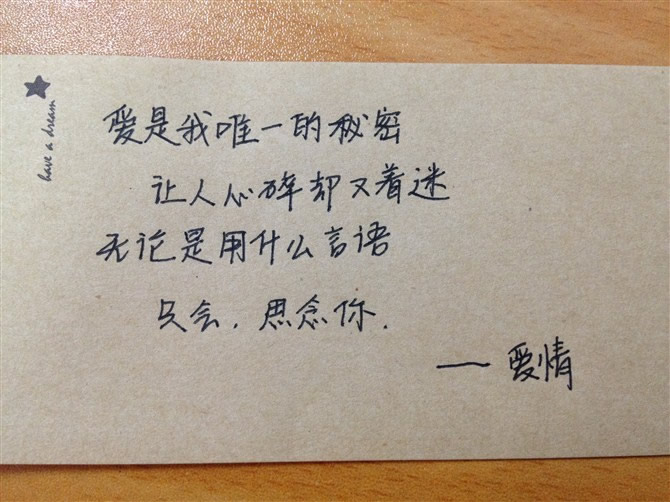 have a dream
爱是我唯一的秘密
让人心碎却又着迷
无论是用什么言语
只会.思念你.
——爱情